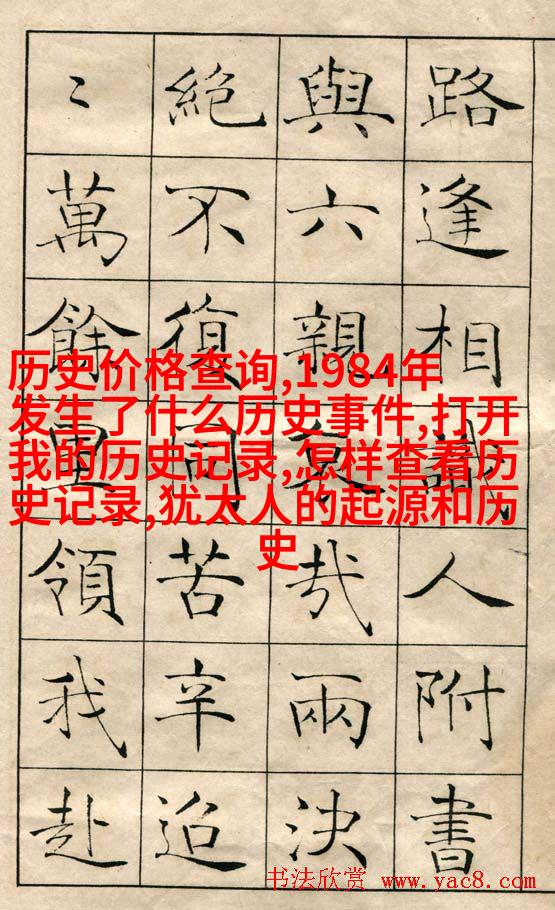 路逢相識人附書
與六親哀哉兩決
絕不復同苦辛迢
〻萬餘里領我赴
历史价格查询,1984年
发生了什么历史事件,打开
我的历史记录,怎样查看历
史记录,犹太人的起源和历
史
书法欣赏 www.yac8.com